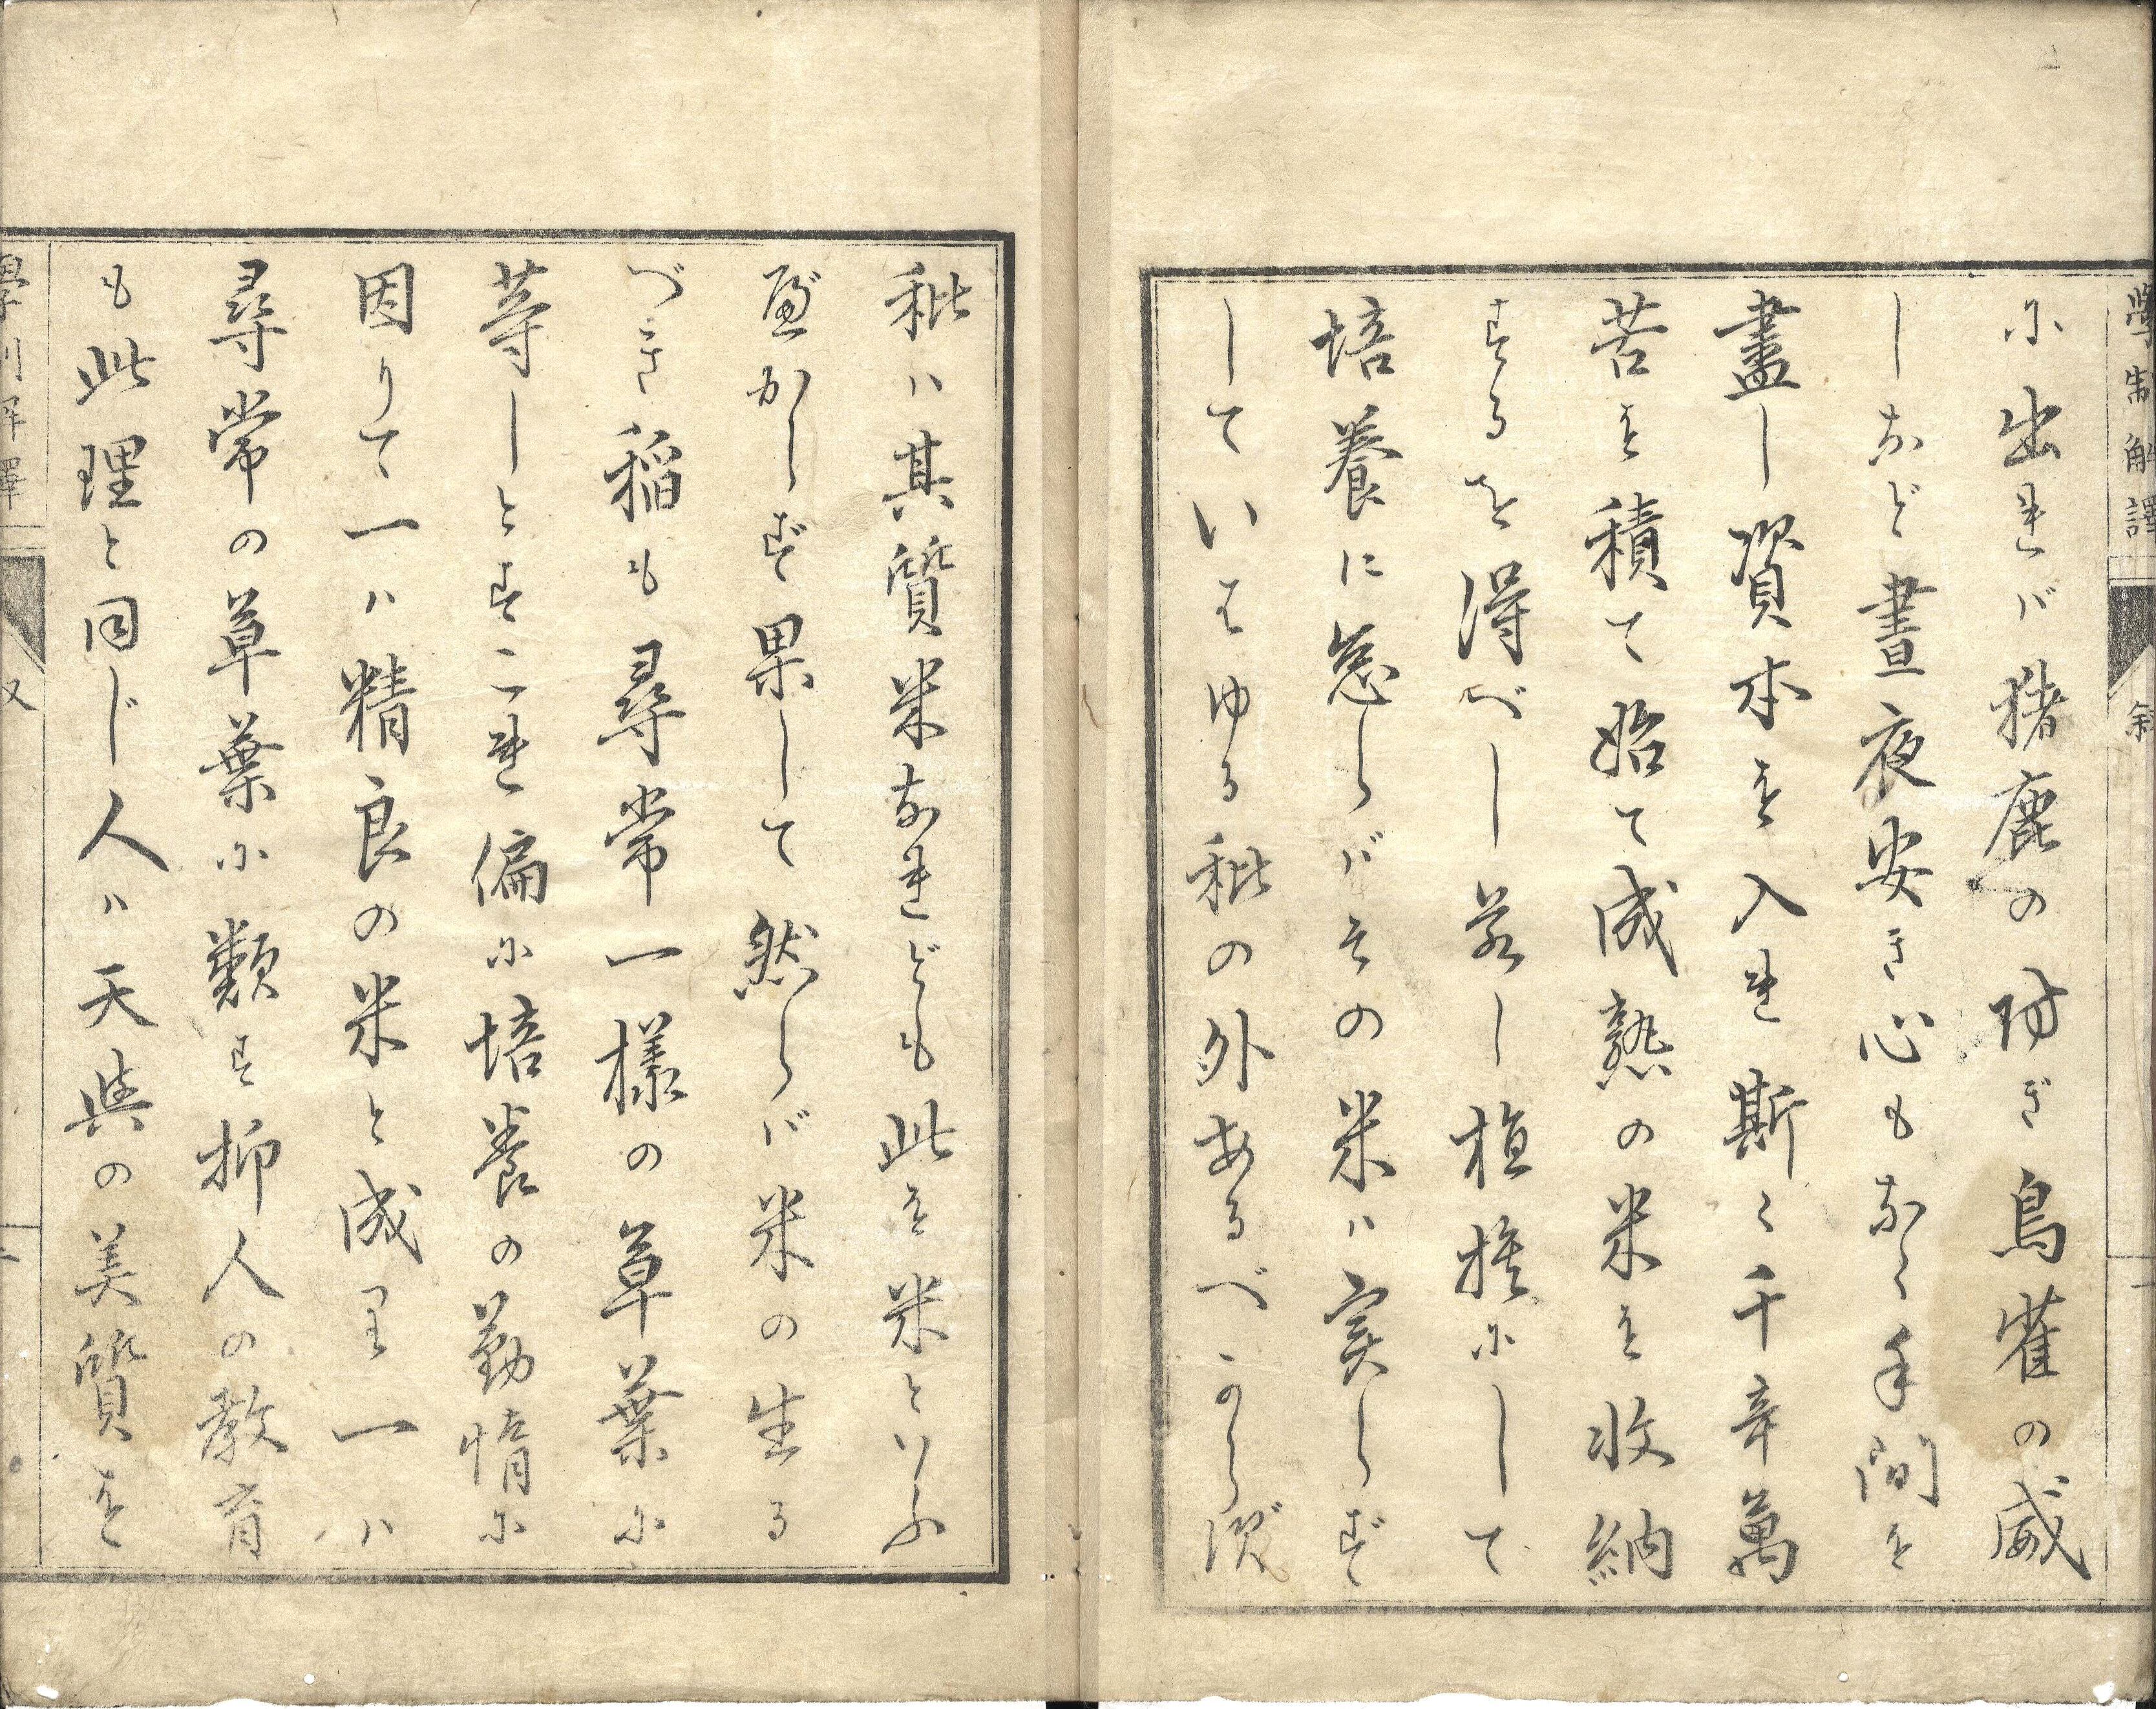 學制解譯
叙
に出れバ猪鹿の防ぎ鳥雀の威
しなど晝夜安き心もなく手間を
盡し資本を入れ斯く千辛萬
苦を積て始て成熟の米を收納
することを得べし若し植捨にして
培養に怠らバその米ハ実らず
していはゆる秕の外あるべからず
秕ハ其質米なれども此を米といふ
べからず果して然らバ米の生る
べき稲も尋常一様の草葉に
等しとすこれ偏に培養の勤惰に
因りて一ハ精良の米と成り一ハ
尋常の草葉に類す抑人の教育
も此理と同じ人ハ天與の美質を